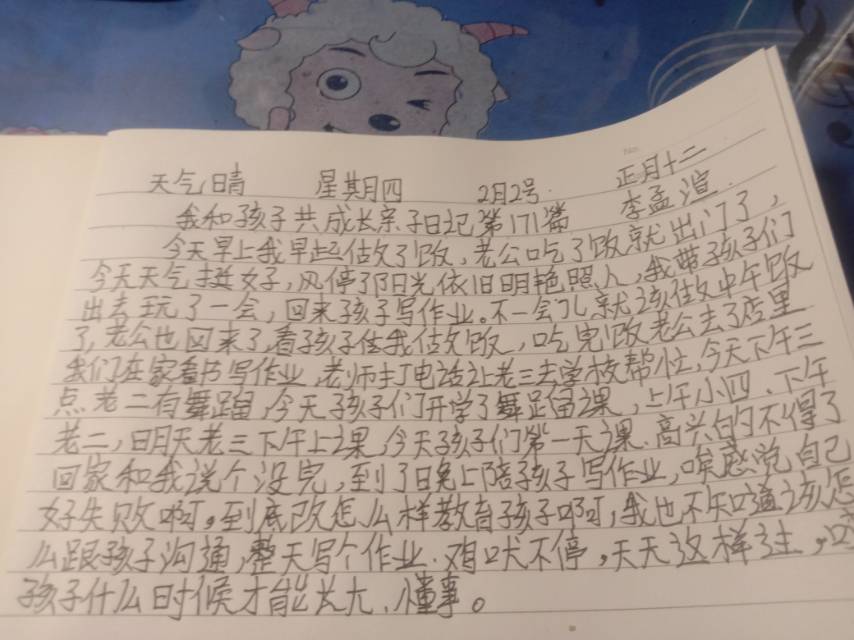 天气晴 星期四 2月2号 正月十二
我和孩子共成长亲子日记第171篇 李孟渲
今天早上我早起做了饭,老公吃了饭就出门了,
今天天气挺好,风停了阳光依旧明艳照人,我带孩子们
出去玩了一会,回来孩子写作业。不一会儿就该做中午饭
了,老公也回来了,看孩子住我做饭,吃完饭老公去了店里
我们在家看书写作业,老师打电话让老三去学校帮忙,今天下午三
点老二有舞蹈,今天孩子们开学了舞蹈课,上午小四、下午
老二,明天老三下午上课,今天孩子们第一天课.高兴的不得了
回家和我说个没完,到了晚上陪孩子写作业,唉感觉自己
好失败啊,到底改怎么样教育孩子啊,我也不知道该怎
么跟孩子沟通,整天写个作业.鸡吠不停,天天这样过,
孩子什么时候才能长大、懂事。